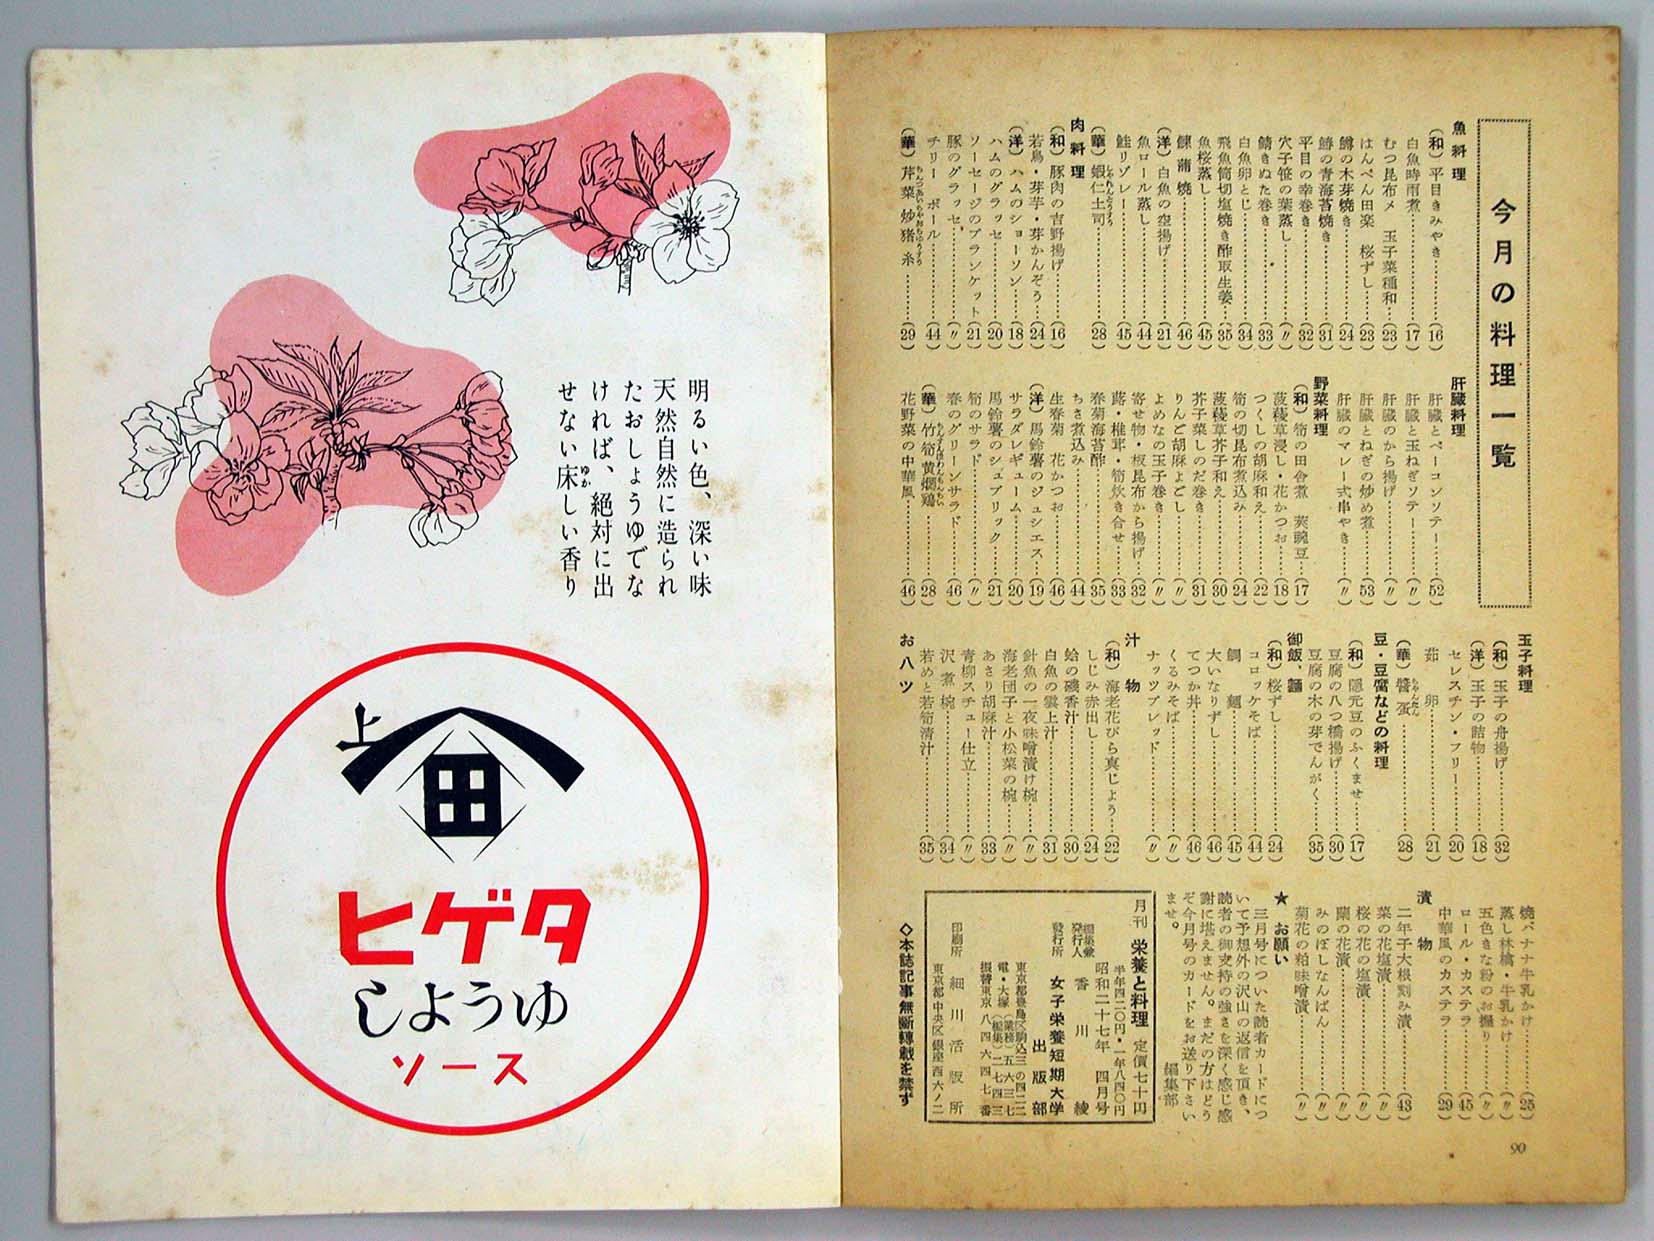 今月の料理一覧
魚料理
(和) 平目きみやき……(16)
白魚時雨煮……(17)
むつ昆布〆 玉子菜種和……(23)
はんぺん田楽 桜ずし……(23)
鱒の木芽焼き……(24)
鱚の青海苔焼き……(31)
平目の幸巻き……(32)
穴子笹の葉蒸し……(〃)
鯖きぬた巻き……(33)
白魚卵とじ……(34)
飛魚筒切塩焼き酢取生姜……(35)
魚桜蒸し……(45)
鰊蒲焼……(46)
(洋) 白魚の空揚げ……(21)
魚ロール蒸し……(44)
鮭リゾレー……(45)
(華) 蝦仁土司……(28)
肉料理
(和) 豚肉の吉野揚げ……(16)
若鳥・芽芋・芽かんぞう……(24)
(洋) ハムのショーソン……(18)
ハムのグラッセ……(20)
ソーセージのブランケット……(21)
豚のグラッセ……(〃)
チリーボール……(44)
(華) 芹菜炒猪糸……(29)
肝臓料理
肝臓とベーコンソテー……(52)
肝臓と玉ねぎソテー……(〃)
肝臓のから揚げ……(〃)
肝臓とねぎの炒め煮……(53)
肝臓のマレー式串やき……(〃)
野菜料理
(和) 筍の田舎煮 莢豌豆……(17)
菠薐草浸し・花かつお……(18)
つくしの胡麻和え……(22)
筍の切昆布煮込み……(24)
菠薐草芥子和え……(30)
芥子菜しのだ巻き……(31)
りんご胡麻よごし……(〃)
よめなの玉子巻き……(〃)
寄せ物・板昆布から揚げ……(32)
蕗・椎茸・筍炊き合せ……(33)
春菊海苔酢……(35)
ちさ煮込み……(44)
生春菊 花かつお……(46)
(洋) 馬鈴薯のジュシエス……(19)
サラダレギューム……(20)
馬鈴薯のシュブリック……(21)
筍のサラド……(〃)
春のグリーンサラド……(46)
(華) 竹筍黄燜鶏……(28)
花野菜の中華風……(46)
玉子料理
(和) 玉子の舟揚げ……(32)
(洋) 玉子の詰物……(18)
セレスチン・フリー……(20)
茹卵……(21)
(華) 醬蛋……(28)
豆・豆腐などの料理
(和) 隠元豆のふくませ……(17)
豆腐の八つ橋揚げ……(30)
豆腐の木の芽でんがく……(35)
御飯、麺
(和) 桜ずし……(24)
コロッケそば……(44)
鯛麺……(45)
大いなりずし……(46)
てつか丼……(46)
くるみそば……(〃)
ナッツブレッド……(〃)
汁物
(和) 海老花びら真じょう……(22)
しじみ赤出し……(24)
蛤の磯香汁……(30)
白魚の雲上汁……(31)
針魚の一夜味噌漬け椀……(〃)
海老団子と小松菜の椀……(〃)
あさり胡麻汁……(33)
青柳スチュー仕立……(〃)
沢煮椀……(34)
若めと若筍清汁……(35)
おハツ
焼バナナ牛乳かけ……(25)
蒸し林檎・牛乳かけ……(〃)
五色きな粉のお握り……(〃)
ロール・カステラ……(45)
中華風のカステラ……(29)
漬物
二年子大根刻み漬……(43)
菜の花塩漬……(〃)
桜の花の塩漬……(〃)
蘭の花漬……(〃)
みのぼしなんばん……(〃)
菊花の粕味噌漬……(〃)
★お願い
三月号についた読者カードにつ
いて予想外の沢山の返信を頂き、
読者の御支持の強さを深く感じ感
謝に堪えません。まだの方はどう
ぞ今月号のカードをお送り下さい
ませ。
編集部
月刊 栄養と料理 定價七十円
半年四二〇円・一年八四〇円
昭和二十七年 四月号
編集兼発行人 香川綾
発行所 女子栄養短期大学出版部
東京都豊島区駒込三の四二二
電・大塚(業務)五六三七(編集)二七四三
振替東京八四六四七番
印刷所 細川活版所
東京都中央区銀座西六ノ二
◇本誌記事無断轉載を禁ず
90
明るい色、深い味
天然自然に造られ
たおしょうゆでな
ければ、絶対に出
せない床しい香り
ゆか
上
田
ヒゲタ
しょうゆ
ソース